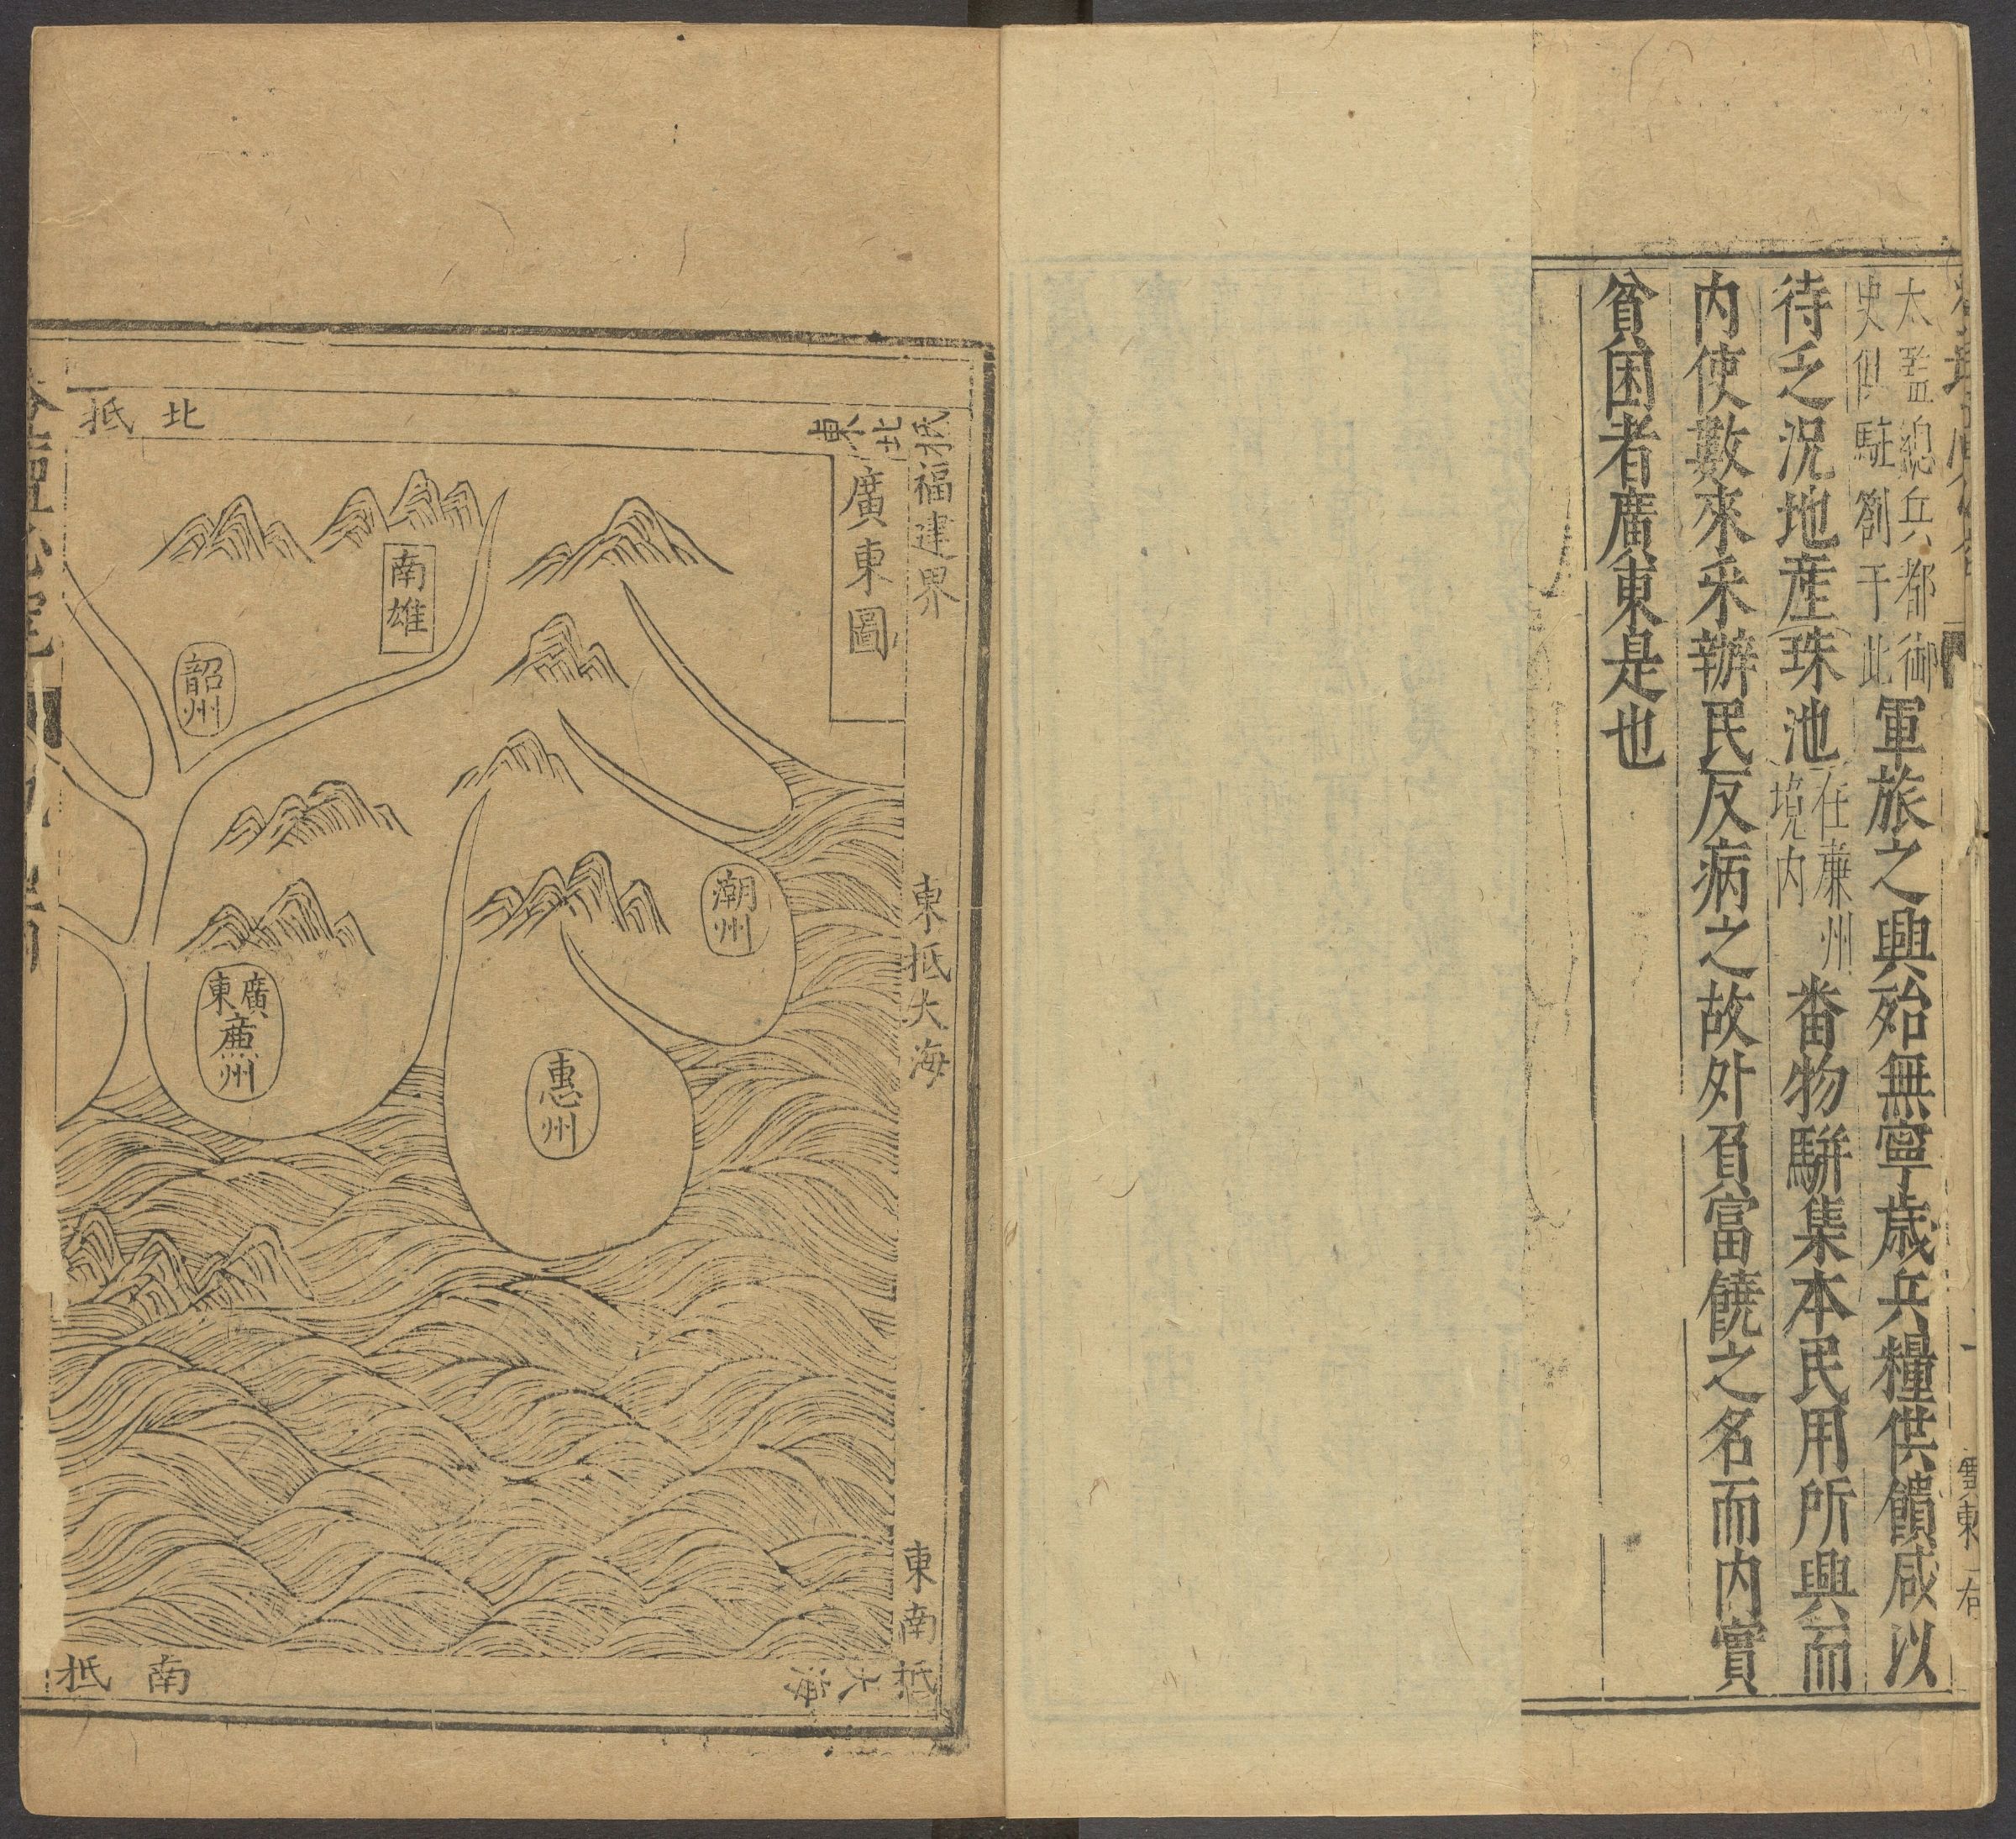 太監總兵都御
史俱駐劄于此
軍旅之興殆無寧歲兵糧供饋咸以
待之況地産珠池
在廉州
境内
畨物駢集本民用所興而
内使數來采辦民反病之故外負富饒之名而内實
貧困者廣東是也
廣東
右
東北抵福建界
廣東圖
東抵大海
東南抵大海
北抵
南雄
韶州
潮州
惠州
廣東
廣州
南抵